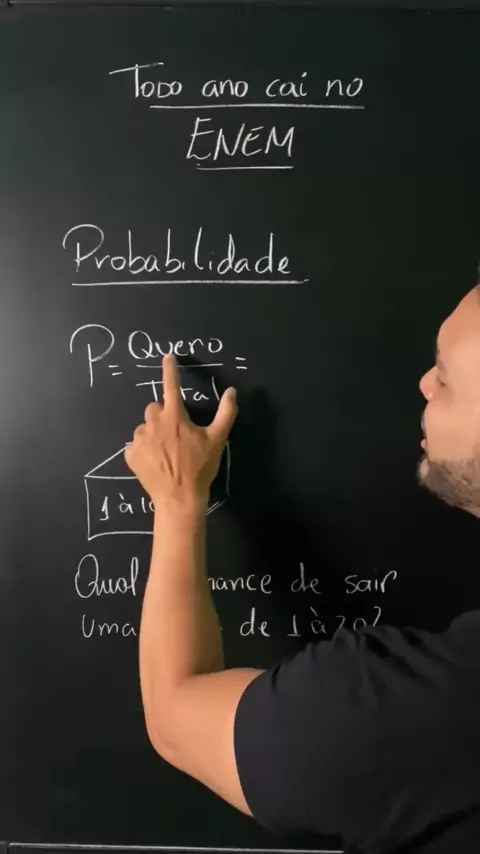 Todo ano cai no
ENEM
Probabilidade
P = Quero =
Total
1 à
Qual de sair
uma de 1 à 20?